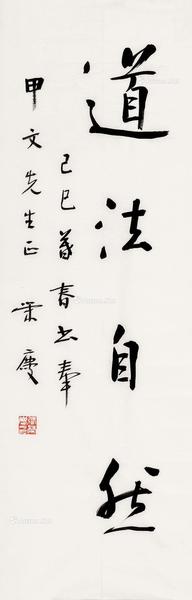 道法自然
己巳暮春书奉
甲文先生正